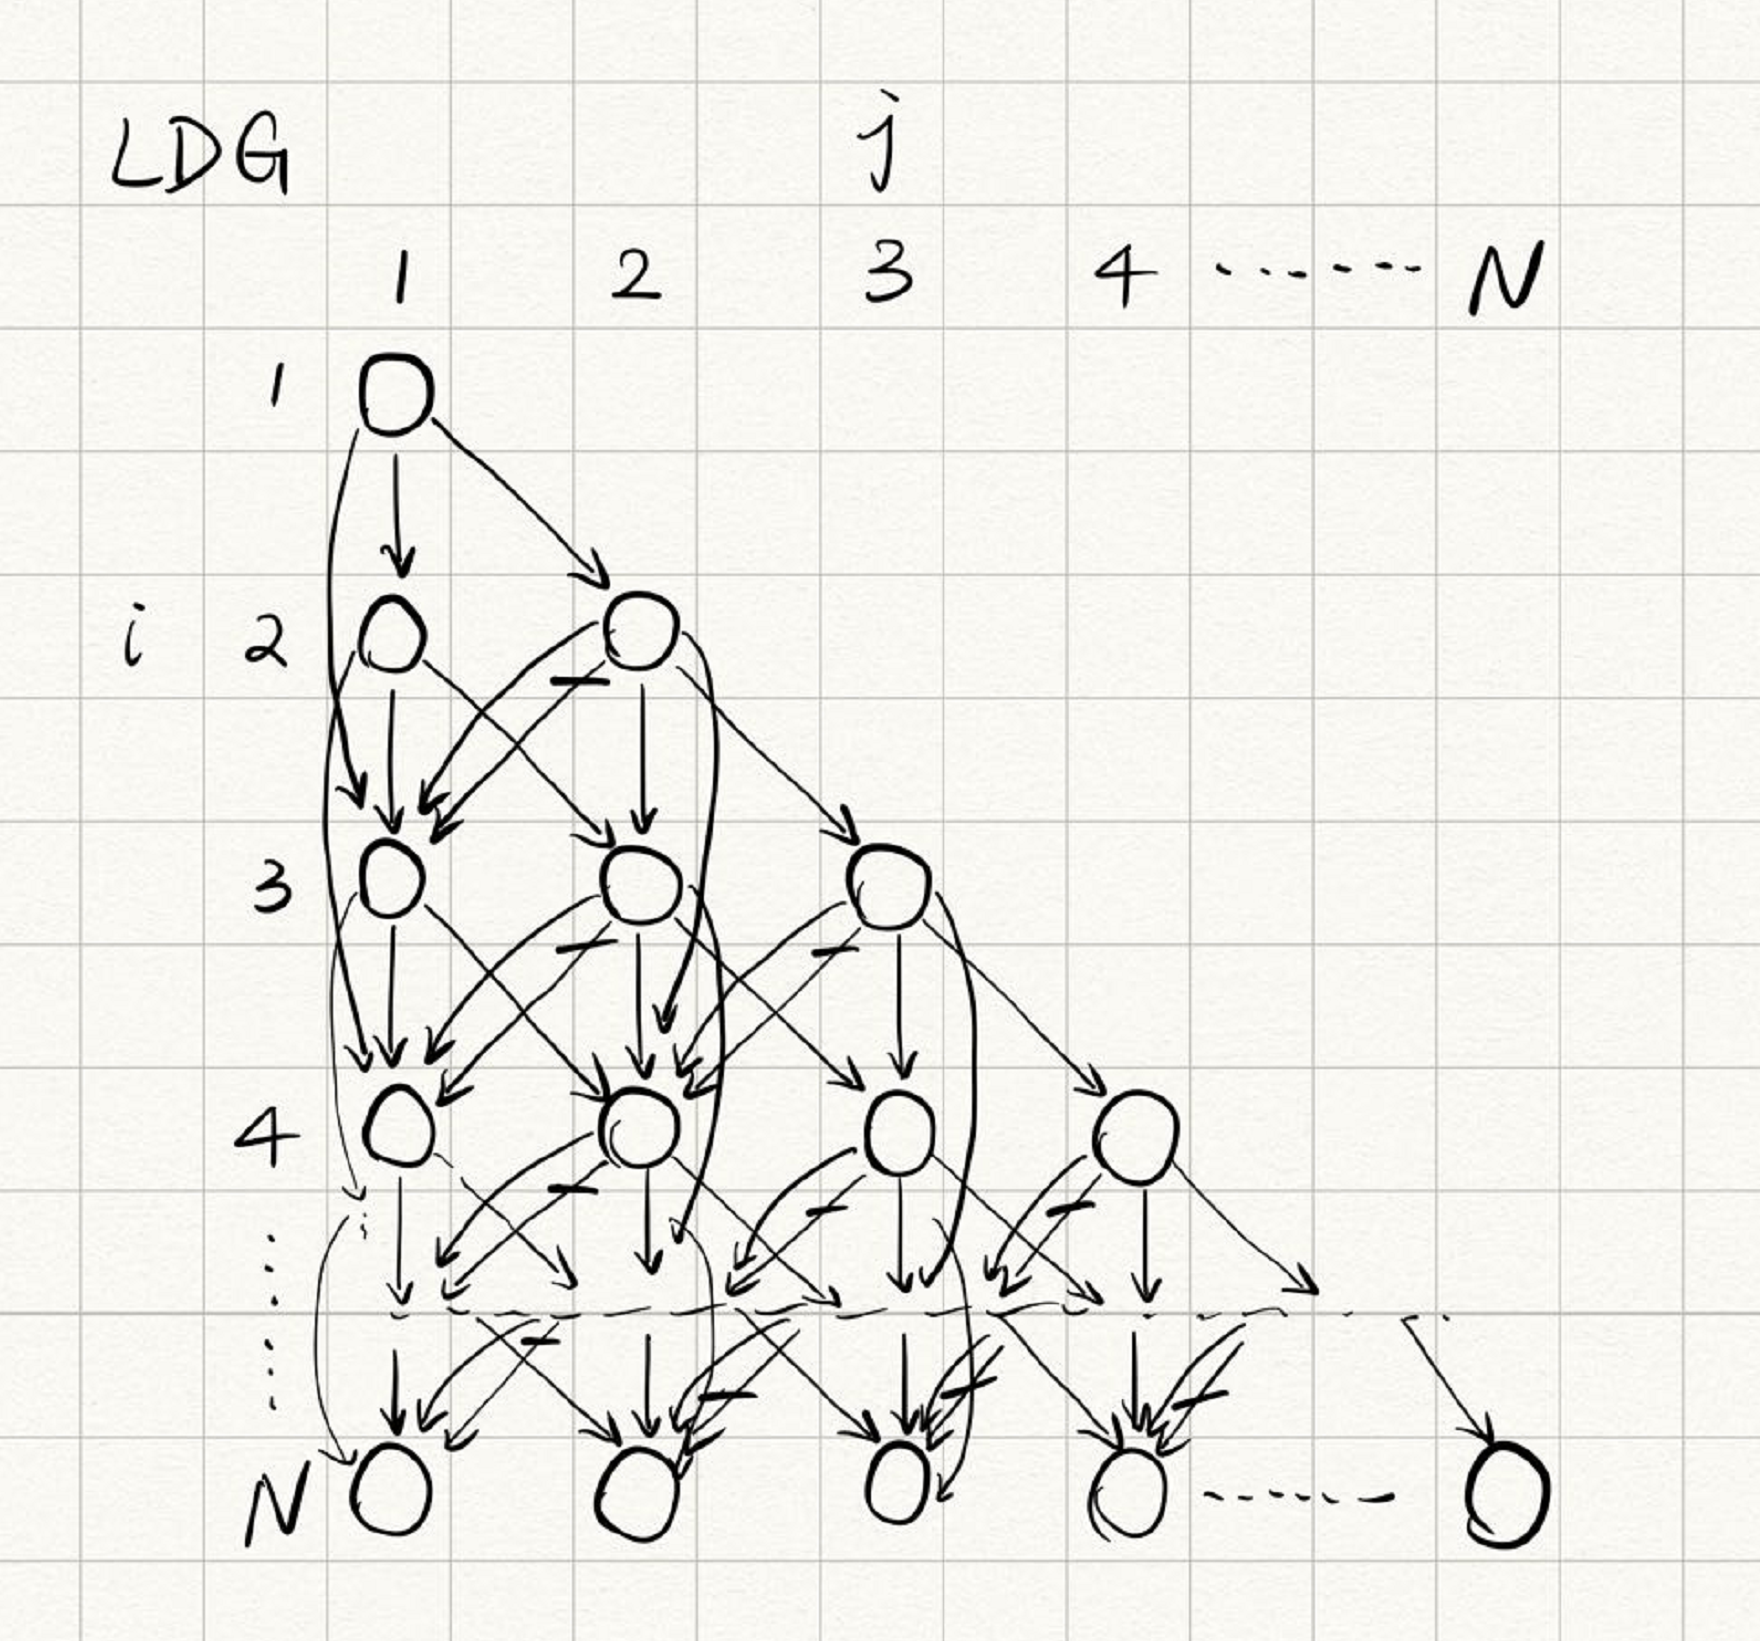 LDG
j
1 2 3 4 ...... N
1
i 2
3
4
N